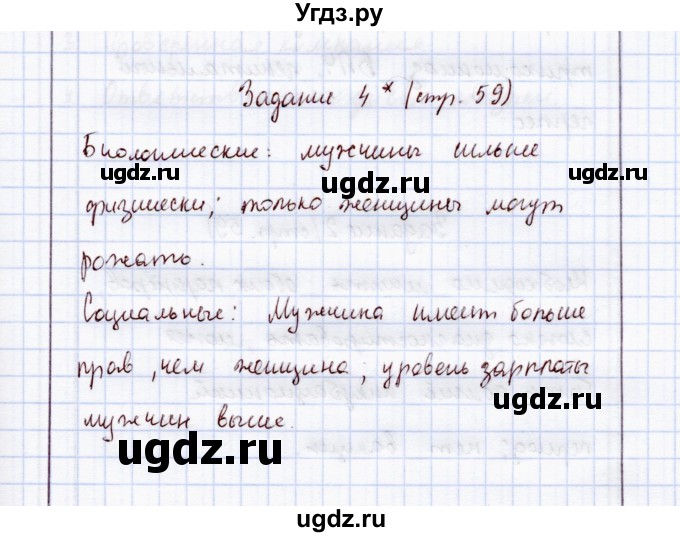 Угдз.ру
Задание 4* (стр. 59)
Биологические: мужчины сильнее
ugdz.ru ugdz.ru ugdz.ru
физически; только женщины могут
рожать.
ugdz.ru
Социальные: Мужчина имеет больше
прав, чем женщина, уровень зарплаты
ugdz.ru ugdz.ru
мужчин выше.
ugdz.ru
ugdz.ru